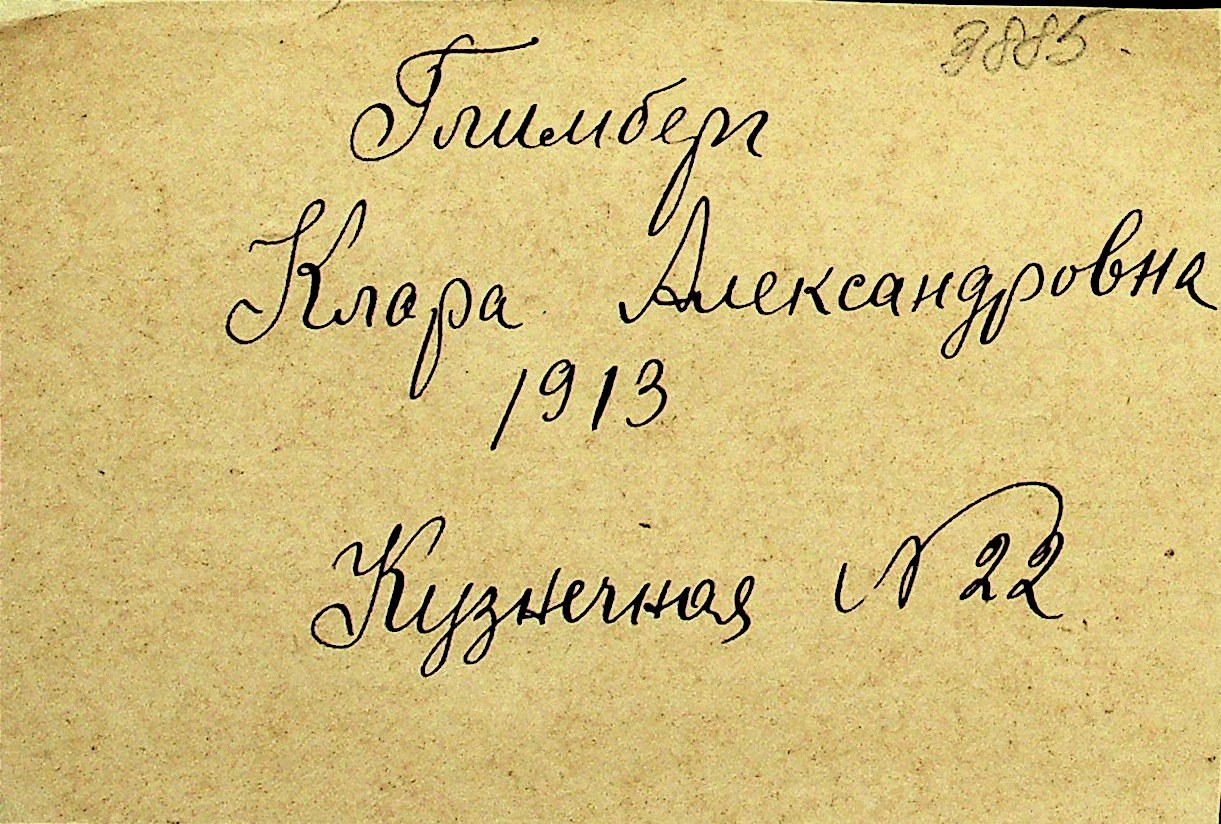 9885
Глимберг
Клара Александровна
1913
Кузнечная N 22